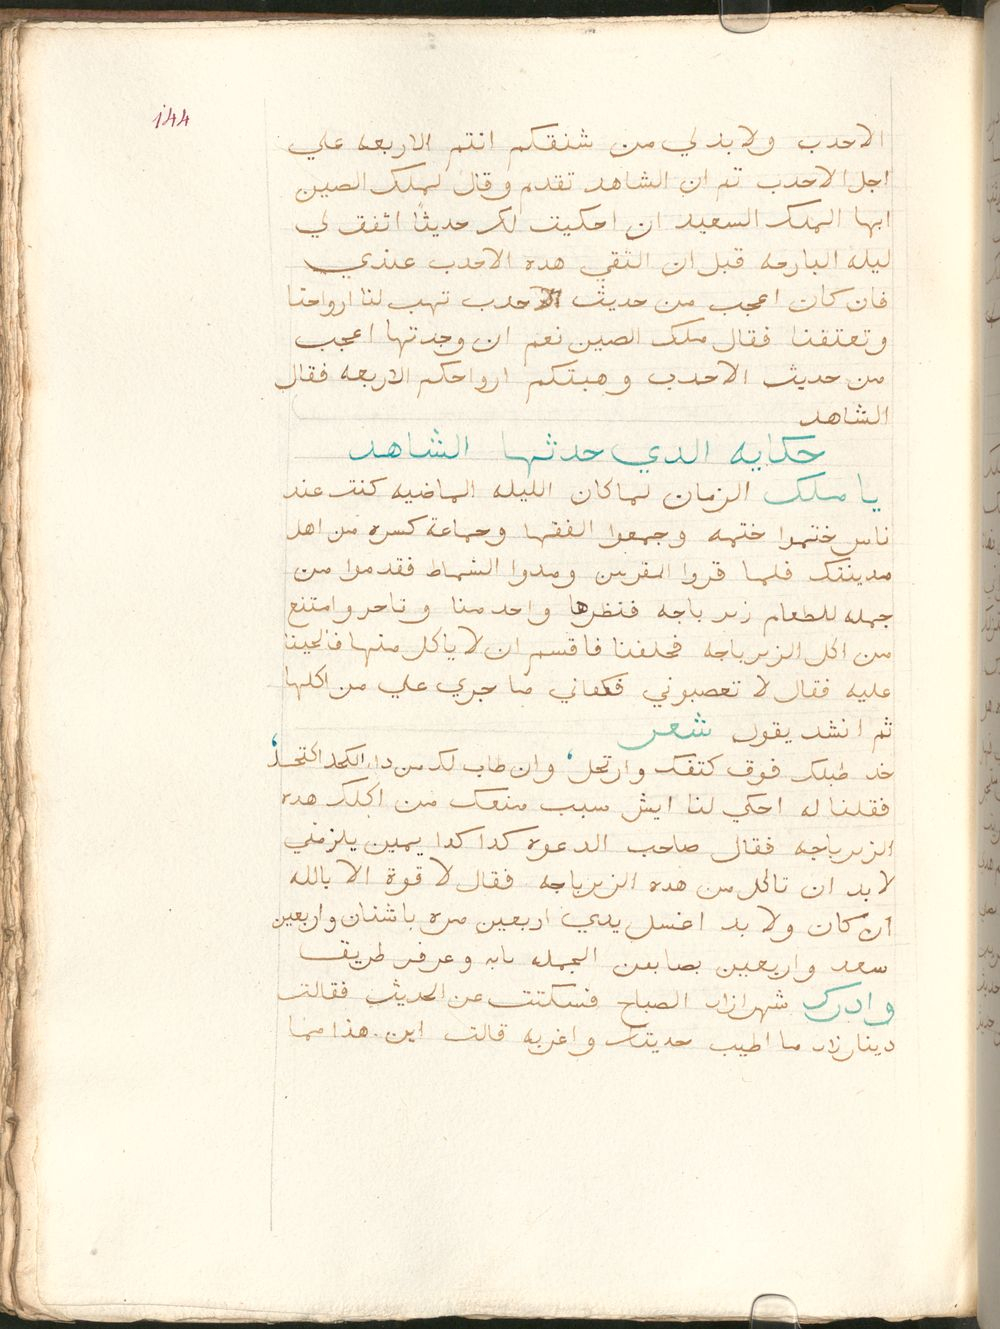 144
الاحدب ولا بد لي من شنقكم انتم الاربعه علي
اجل الاحدب تم ان الشاهد تقدم وقال لملك الصين
ايها الملك السعيد ان احكيت لك حديثا اتفق لي
ليله البارحه قبل ان التقي هده الاحدب عندي
فان كان اعجب من حديث الاحدب تهب لنا ارواحنا
وتعتقنا فقال ملك الصين نعم ان وجدتها اعجب
من حديث الاحدب وهبتكم ارواحكم الاربعه فقال
الشاهد
حكايه الدي حدثها الشاهد
يا ملك الزمان لما كان الليله الماضيه كنت عند
ناس ختموا ختمه وجمعوا الفقها وجماعة كسره من اهل
مدينتك فلما قروا المقرين ومدوا الشماط فقدموا من
جمله للطعام زيرباجه فنظرها واحد منا وتاخر وامتنع
من اكل الزيرباجه فحلفنا فاقسم ان لا ياكل منها فالحينا
عليه فقال لا تغصبوني فكفاني ما جري علي من اكلها
ثم انشد يقول شعر
خد طبلك فوق كتفك وارتحل، وان طاب لك من دا الكحل اكتحل،
فقلنا له احكي لنا ايش سبب منعك من اكلك هده
الزيرباجه فقال صاحب الدعوه كدا كدا يمين يلزمني
لا بد ان تاكل من هده الزيرباجه فقال لا قوة الا بالله
ان كان ولا بد اغسل يدي اربعين مره باشنان واربعين
سعد واربعين بصابون الجمله مايه وعرفر طريقا
وادرك شهرازاد الصباح فسكتت عن الحديث فقالت
دينارزاد ما اطيب حديثك واغربه قالت اين هذا مما